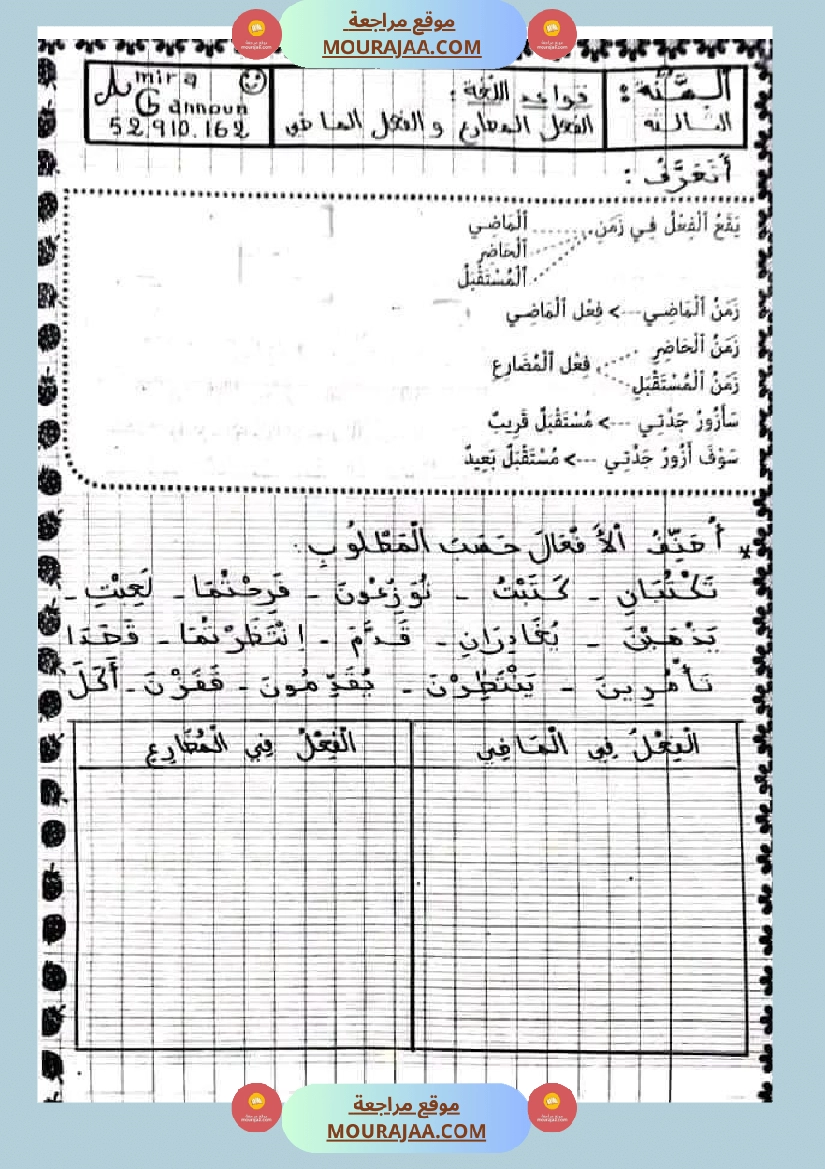 موقع مراجعة
MOURAJAA.COM
السَّنة :
الثالثة
قواعد اللغة :
الفعل المضارع والفعل الماضي
Amira
Gannoun
52.910.162
أَتَعَرَّفُ :
يَقَعُ اَلْفِعْلُ فِي زَمَنِ
اَلْمَاضِي
اَلْحَاضِرِ
اَلْمُسْتَقْبَلُ
زَمَنُ اَلْمَاضِي ---> فِعْل اَلْمَاضِي
زَمَنُ اَلْحَاضِرِ
فِعْل اَلْمُضَارِعِ
زَمَنُ اَلْمُسْتَقْبَلِ
سَأَزُورُ جَدَّتِي ---> مُسْتَقْبَلٌ قَرِيبٌ
سَوْفَ أَزُورُ جَدَّتِي ---> مُسْتَقْبَلٌ بَعِيدٌ
* أُصَنِّفُ اَلْأَفْعَالَ حَسَبَ الْمَطْلُوبِ :
تَكْتُبَانِ - كَتَبْتُ - تُوَزِّعُونَ - فَرِحْتُمَا - لَعِبْتِ -
يَذْهَبْنَ - يُغَادِرَانِ - قَدَّمَ - اِنْتَظَرْتُمَا - قَصَدَا
تَأْمُرِينَ - يَنْتَظِرْنَ - يُقَدِّمُونَ - قَفَزْنَ - أَكَلَ
الْفِعْلُ فِي الْمَاضِي
الْفِعْلُ فِي الْمُضَارِعِ
موقع مراجعة
MOURAJAA.COM